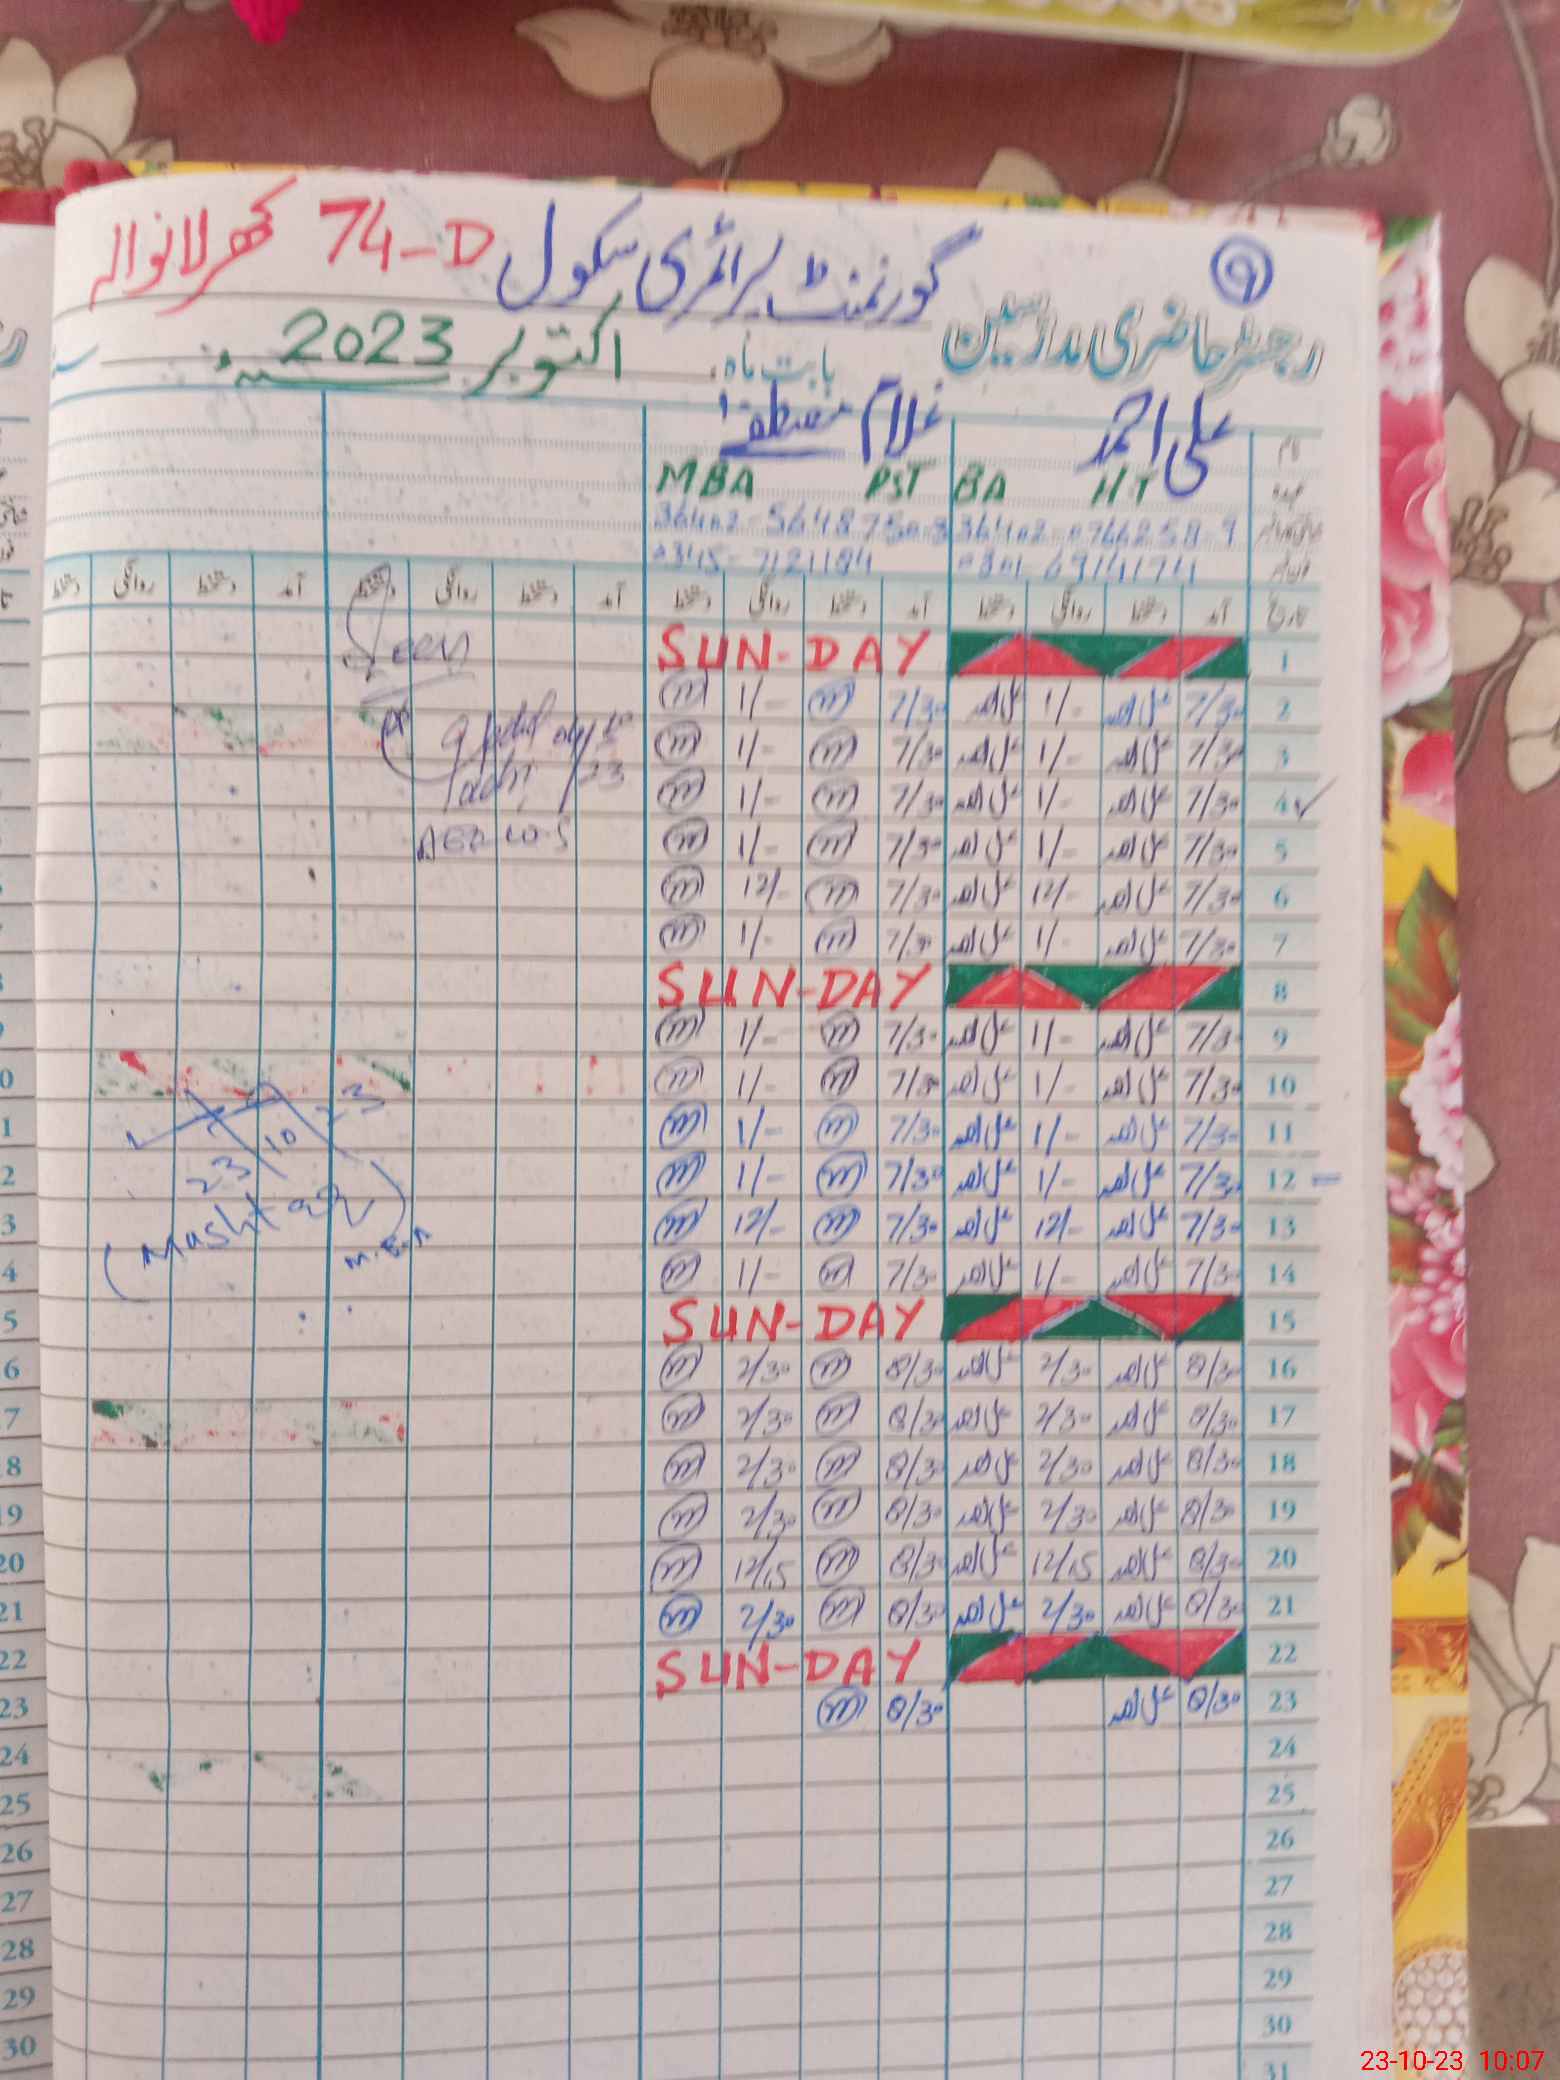 ۹
گورنمنٹ پرائمری سکول 74-D کھرلانوالہ
رجسٹر حاضری مدرسین بابت ماہ اکتوبر 2023ء
نام علی احمد غلام مصطفےٰ
عہدہ HT BA PST MBA
تاریخ آمد دستخط روانگی دستخط آمد دستخط روانگی دستخط آمد دستخط روانگی دستخط آمد دستخط روانگی دستخط
1 SUN-DAY
2 7/30 علی احمد 1/- علی احمد 7/30 m 1/- m
3 7/30 علی احمد 1/- علی احمد 7/30 m 1/- m
4 7/30 علی احمد 1/- علی احمد 7/30 m 1/- m
5 7/30 علی احمد 1/- علی احمد 7/30 m 1/- m
6 7/30 علی احمد 12/- علی احمد 7/30 m 12/- m
7 7/30 علی احمد 1/- علی احمد 7/30 m 1/- m
8 SUN-DAY
9 7/30 علی احمد 1/- علی احمد 7/30 m 1/- m
10 7/30 علی احمد 1/- علی احمد 7/30 m 1/- m
11 7/30 علی احمد 1/- علی احمد 7/30 m 1/- m
12 7/30 علی احمد 1/- علی احمد 7/30 m 1/- m
13 7/30 علی احمد 12/- علی احمد 7/30 m 12/- m
14 7/30 علی احمد 1/- علی احمد 7/30 m 1/- m
15 SUN-DAY
16 8/30 علی احمد 2/30 علی احمد 8/30 m 2/30 m
17 8/30 علی احمد 2/30 علی احمد 8/30 m 2/30 m
18 8/30 علی احمد 2/30 علی احمد 8/30 m 2/30 m
19 8/30 علی احمد 2/30 علی احمد 8/30 m 2/30 m
20 8/30 علی احمد 12/15 علی احمد 8/30 m 12/15 m
21 8/30 علی احمد 2/30 علی احمد 8/30 m 2/30 m
22 SUN-DAY
23 8/30 علی احمد 8/30 m
24
25
26
27
28
29
30
31
Seen
23/10/23
(Mushtaq)
23-10-23 10:07